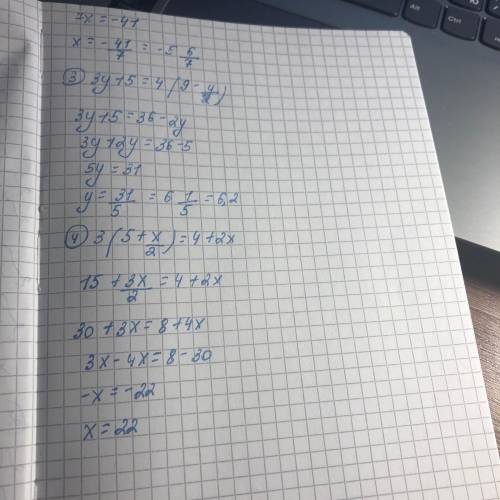 7x = -41
x = -41/7 = -5 6/7
③ 3y+5 = 4(9 - y/2)
3y+5 = 36-2y
3y+2y = 36-5
5y = 31
y = 31/5 = 6 1/5 = 6,2
④ 3(5 + x/2) = 4+2x
15 + 3x/2 = 4+2x
30 + 3x = 8+4x
3x - 4x = 8 - 30
-x = -22
x = 22
Alt
Ctrl